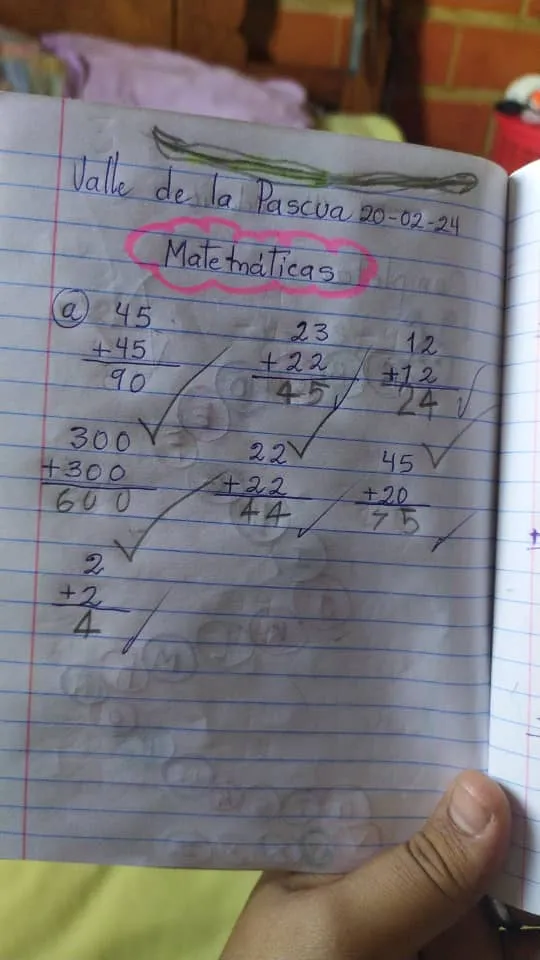 Valle de la Pascua 20-02-24
Matemáticas
a 45 23 12
+45 +22 +12
90 45 24
300 22 45
+300 +22 +20
600 44 75
2
+2
4